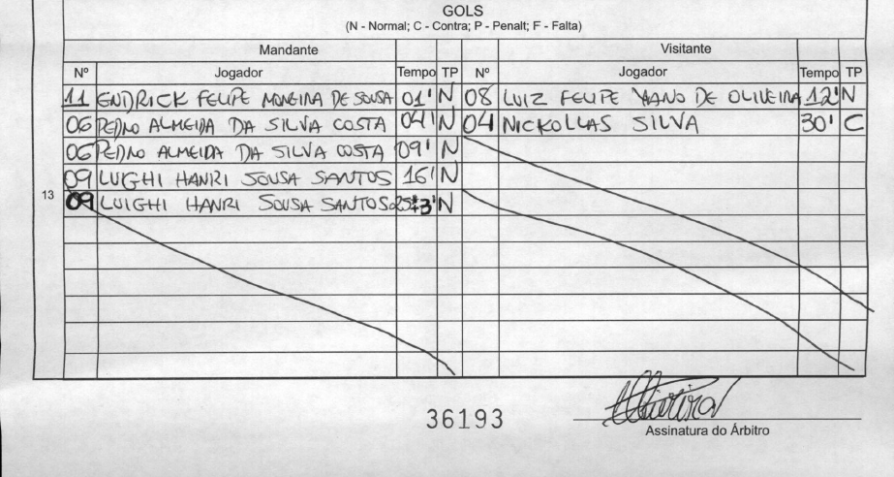 GOLS
(N - Normal; C - Contra; P - Penalt; F - Falta)
Mandante Visitante
Nº Jogador Tempo TP Nº Jogador Tempo TP
11 ENDRICK FELIPE MOREIRA DE SOUSA 01' N 08 LUIZ FELIPE YANO DE OLIVEIRA 12' N
06 PEDRO ALMEIDA DA SILVA COSTA 04' N 04 NICKOLLAS SILVA 30' C
06 PEDRO ALMEIDA DA SILVA COSTA 09' N
09 LUIGHI HANRI SOUSA SANTOS 16' N
13 09 LUIGHI HANRI SOUSA SANTOS N
36193
Assinatura do Árbitro